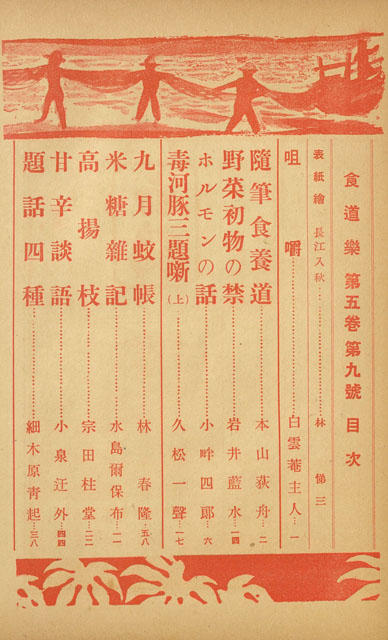 食道樂 第五卷 第九號 目次
表紙繪 長江入秋……………林悌三
咀嚼……………白雲菴主人…一
隨筆食養道……………本山荻舟…二
野菜初物の禁……………岩井藍水…一四
ホルモンの話……………小畔四郎…六
毒河豚三題噺(上)……………久松一聲…一七
九月蚊帳……………林春隆…五八
米糖雜記……………水島爾保布…一一
高揚枝……………宗田柱堂…二二
甘辛談語……………小泉迂外…四四
題話四種……………細木原靑起…三八